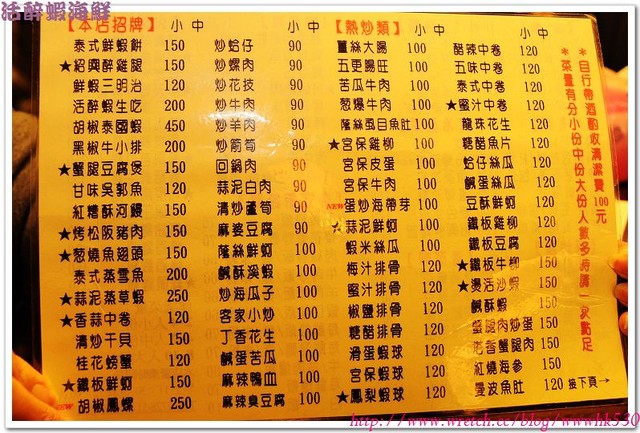 活醉蝦海鮮
【本店招牌】 小 中
泰式鮮蝦餅 150
★紹興醉雞腿 150
鮮蝦三明治 120
活醉蝦生吃 200
胡椒泰國蝦 450
黑椒牛小排 200
★蟹腿豆腐煲 150
甘味吳郭魚 120
紅糟酥河鰻 150
★烤松阪豬肉 150
★蔥燒魚翅頭 150
泰式蒸雪魚 200
★蒜泥蒸草蝦 250
★香蒜中卷 120
清炒干貝 150
桂花螃蟹 150
★鐵板鮮蚵 120
NEW胡椒鳳螺 250
小 中
炒蛤仔 90
炒螺肉 90
炒花技 90
炒牛肉 90
炒羊肉 90
炒箭筍 90
回鍋肉 90
蒜泥白肉 90
清炒蘆筍 90
麻婆豆腐 90
蔭絲鮮蚵 100
鹹酥溪蝦 100
炒海瓜子 100
客家小炒 100
丁香花生 100
鹹蛋苦瓜 100
麻辣鴨血 100
麻辣臭豆腐 100
【熱炒類】 小 中
薑絲大腸 100
五更腸旺 100
苦瓜牛肉 100
蔥爆牛肉 100
蔭絲虱目魚肚 100
★宮保雞柳 100
宮保皮蛋 100
宮保牛肉 100
NEW蛋炒海帶芽 100
★蒜泥鮮蚵 100
蝦米絲瓜 100
梅汁排骨 120
蜜汁排骨 120
椒鹽排骨 120
糖醋排骨 120
滑蛋蝦球 120
宮保蝦球 120
★鳳梨蝦球 120
小 中
醋辣中卷 120
五味中卷 120
泰式中卷 120
★蜜汁中卷 120
龍珠花生 120
糖醋魚片 120
蛤仔絲瓜 120
鹹蛋絲瓜 120
豆酥鮮蚵 120
鐵板雞柳 120
鐵板豆腐 120
★鐵板牛柳 150
★燙活沙蝦 150
鹹酥蝦 150
蟹腿肉炒蛋 150
塔香蟹腿肉 150
紅燒海參 150
曼波魚肚 120 接下頁→
＊自行帶酒酌收清潔費100元
＊菜量有分小份中份大份人數多時請一次點足
http://www.wretch.cc/blog/wwwhk530